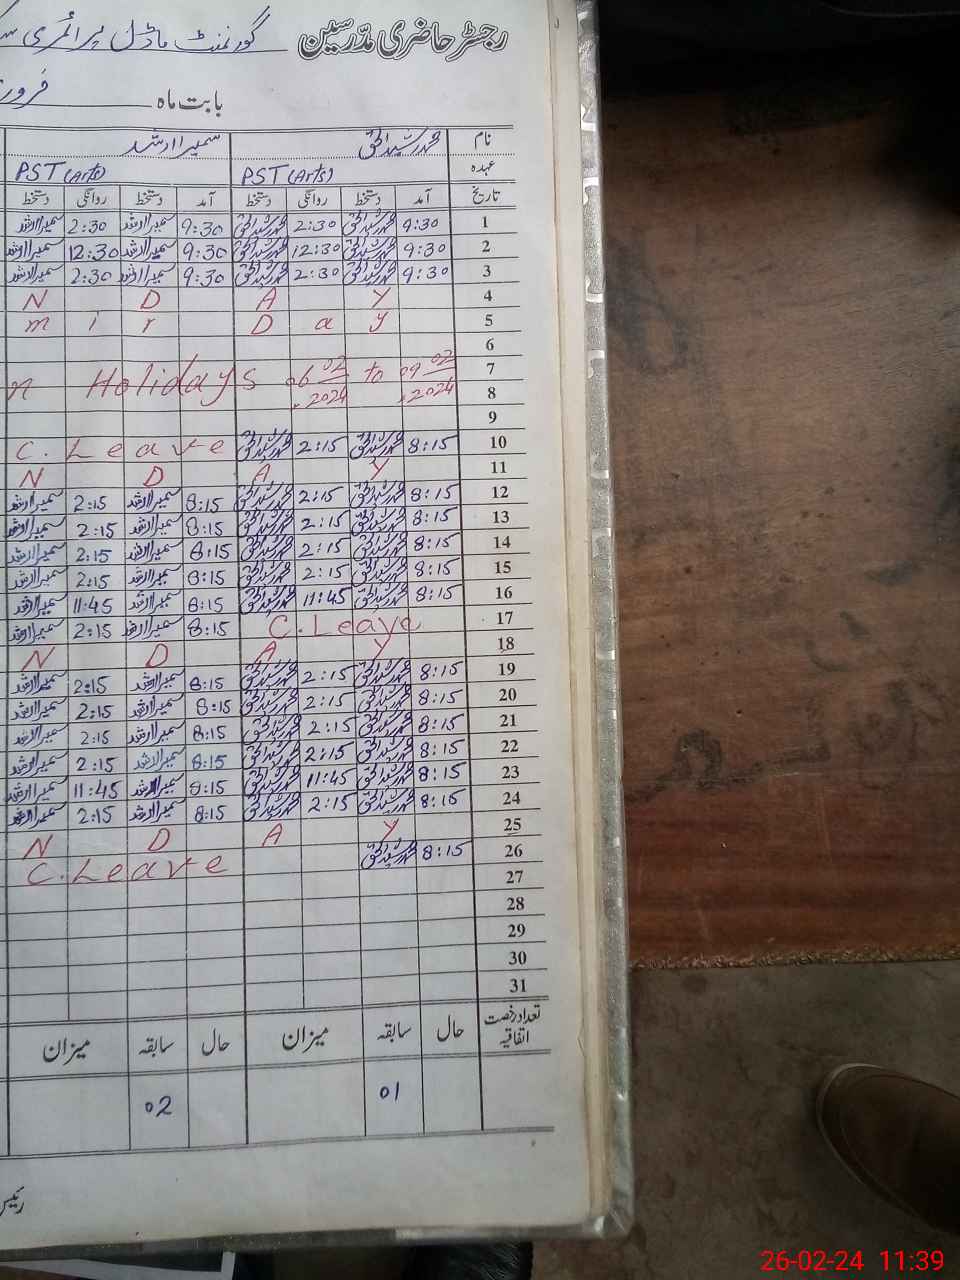 رجسٹر حاضری مدرسین گورنمنٹ ماڈل پرائمری
بابت ماہ
نام محمد رشید الحق سمیرا ارشد
عہدہ PST(Arts) PST(Arts)
تاریخ آمد دستخط روانگی دستخط آمد دستخط روانگی دستخط
1 9:30 محمد رشید الحق 2:30 محمد رشید الحق 9:30 سمیرا ارشد 2:30 سمیرا ارشد
2 9:30 محمد رشید الحق 12:30 محمد رشید الحق 9:30 سمیرا ارشد 12:30 سمیرا ارشد
3 9:30 محمد رشید الحق 2:30 محمد رشید الحق 9:30 سمیرا ارشد 2:30 سمیرا ارشد
4 N D A Y
5 m i r D a y
6
7 n Holidays 06.02.2024 to 09.02.2024
8
9
10 8:15 محمد رشید الحق 2:15 محمد رشید الحق C. Leave
11 N D A Y
12 8:15 محمد رشید الحق 2:15 محمد رشید الحق 8:15 سمیرا ارشد 2:15 سمیرا ارشد
13 8:15 محمد رشید الحق 2:15 محمد رشید الحق 8:15 سمیرا ارشد 2:15 سمیرا ارشد
14 8:15 محمد رشید الحق 2:15 محمد رشید الحق 8:15 سمیرا ارشد 2:15 سمیرا ارشد
15 8:15 محمد رشید الحق 2:15 محمد رشید الحق 8:15 سمیرا ارشد 2:15 سمیرا ارشد
16 8:15 محمد رشید الحق 11:45 محمد رشید الحق 8:15 سمیرا ارشد 11:45 سمیرا ارشد
17 C. Leave 8:15 سمیرا ارشد 2:15 سمیرا ارشد
18 N D A Y
19 8:15 محمد رشید الحق 2:15 محمد رشید الحق 8:15 سمیرا ارشد 2:15 سمیرا ارشد
20 8:15 محمد رشید الحق 2:15 محمد رشید الحق 8:15 سمیرا ارشد 2:15 سمیرا ارشد
21 8:15 محمد رشید الحق 2:15 محمد رشید الحق 8:15 سمیرا ارشد 2:15 سمیرا ارشد
22 8:15 محمد رشید الحق 2:15 محمد رشید الحق 8:15 سمیرا ارشد 2:15 سمیرا ارشد
23 8:15 محمد رشید الحق 11:45 محمد رشید الحق 8:15 سمیرا ارشد 11:45 سمیرا ارشد
24 8:15 محمد رشید الحق 2:15 محمد رشید الحق 8:15 سمیرا ارشد 2:15 سمیرا ارشد
25 N D A Y
26 8:15 محمد رشید الحق C. Leave
27
28
29
30
31
تعداد رخصت اتفاقیہ حال سابقہ میزان حال سابقہ میزان
01 02
26-02-24 11:39